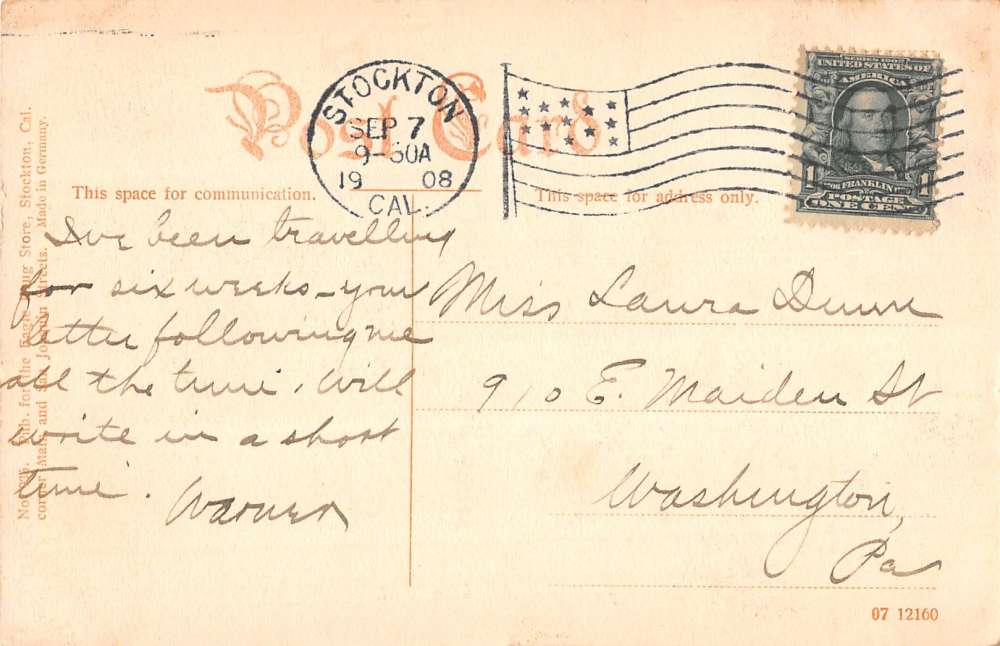 Post Card
STOCKTON
SEP 7
9-30A
1908
CAL.
SERIES 1902
UNITED STATES OF
AMERICA
1 FRANKLIN 1
POSTAGE
ONE CENT
This space for communication.
This space for address only.
I've been travelling
for six weeks - your
letter following me
all the time. Will
write in a short
time. Warner
Miss Laura Dunn
910 E. Maiden St
Washington,
Pa
Pub. for the Eagle Drug Store, Stockton, Cal.
corner Main and San Joaquin Streets. Made in Germany.
07 12160